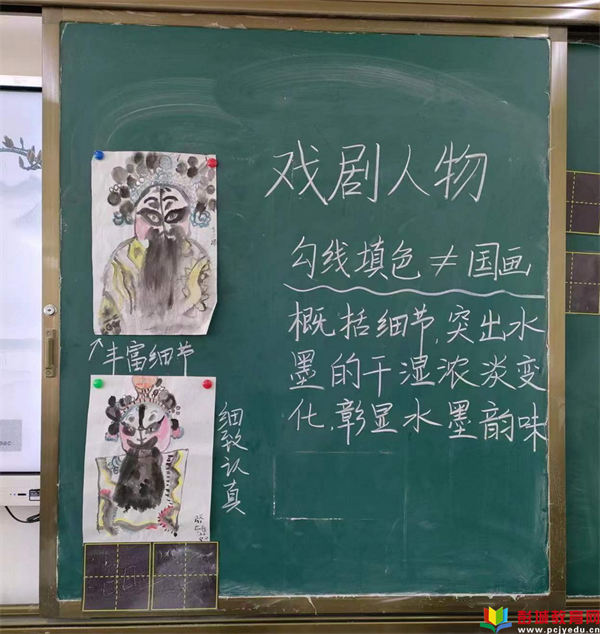 戏剧人物
勾线填色≠国画
概括细节,突出水
墨的干湿浓淡变
化,彰显水墨韵味
↗丰富细节
细致认真
彭城教育网
www.pcjyedu.cn